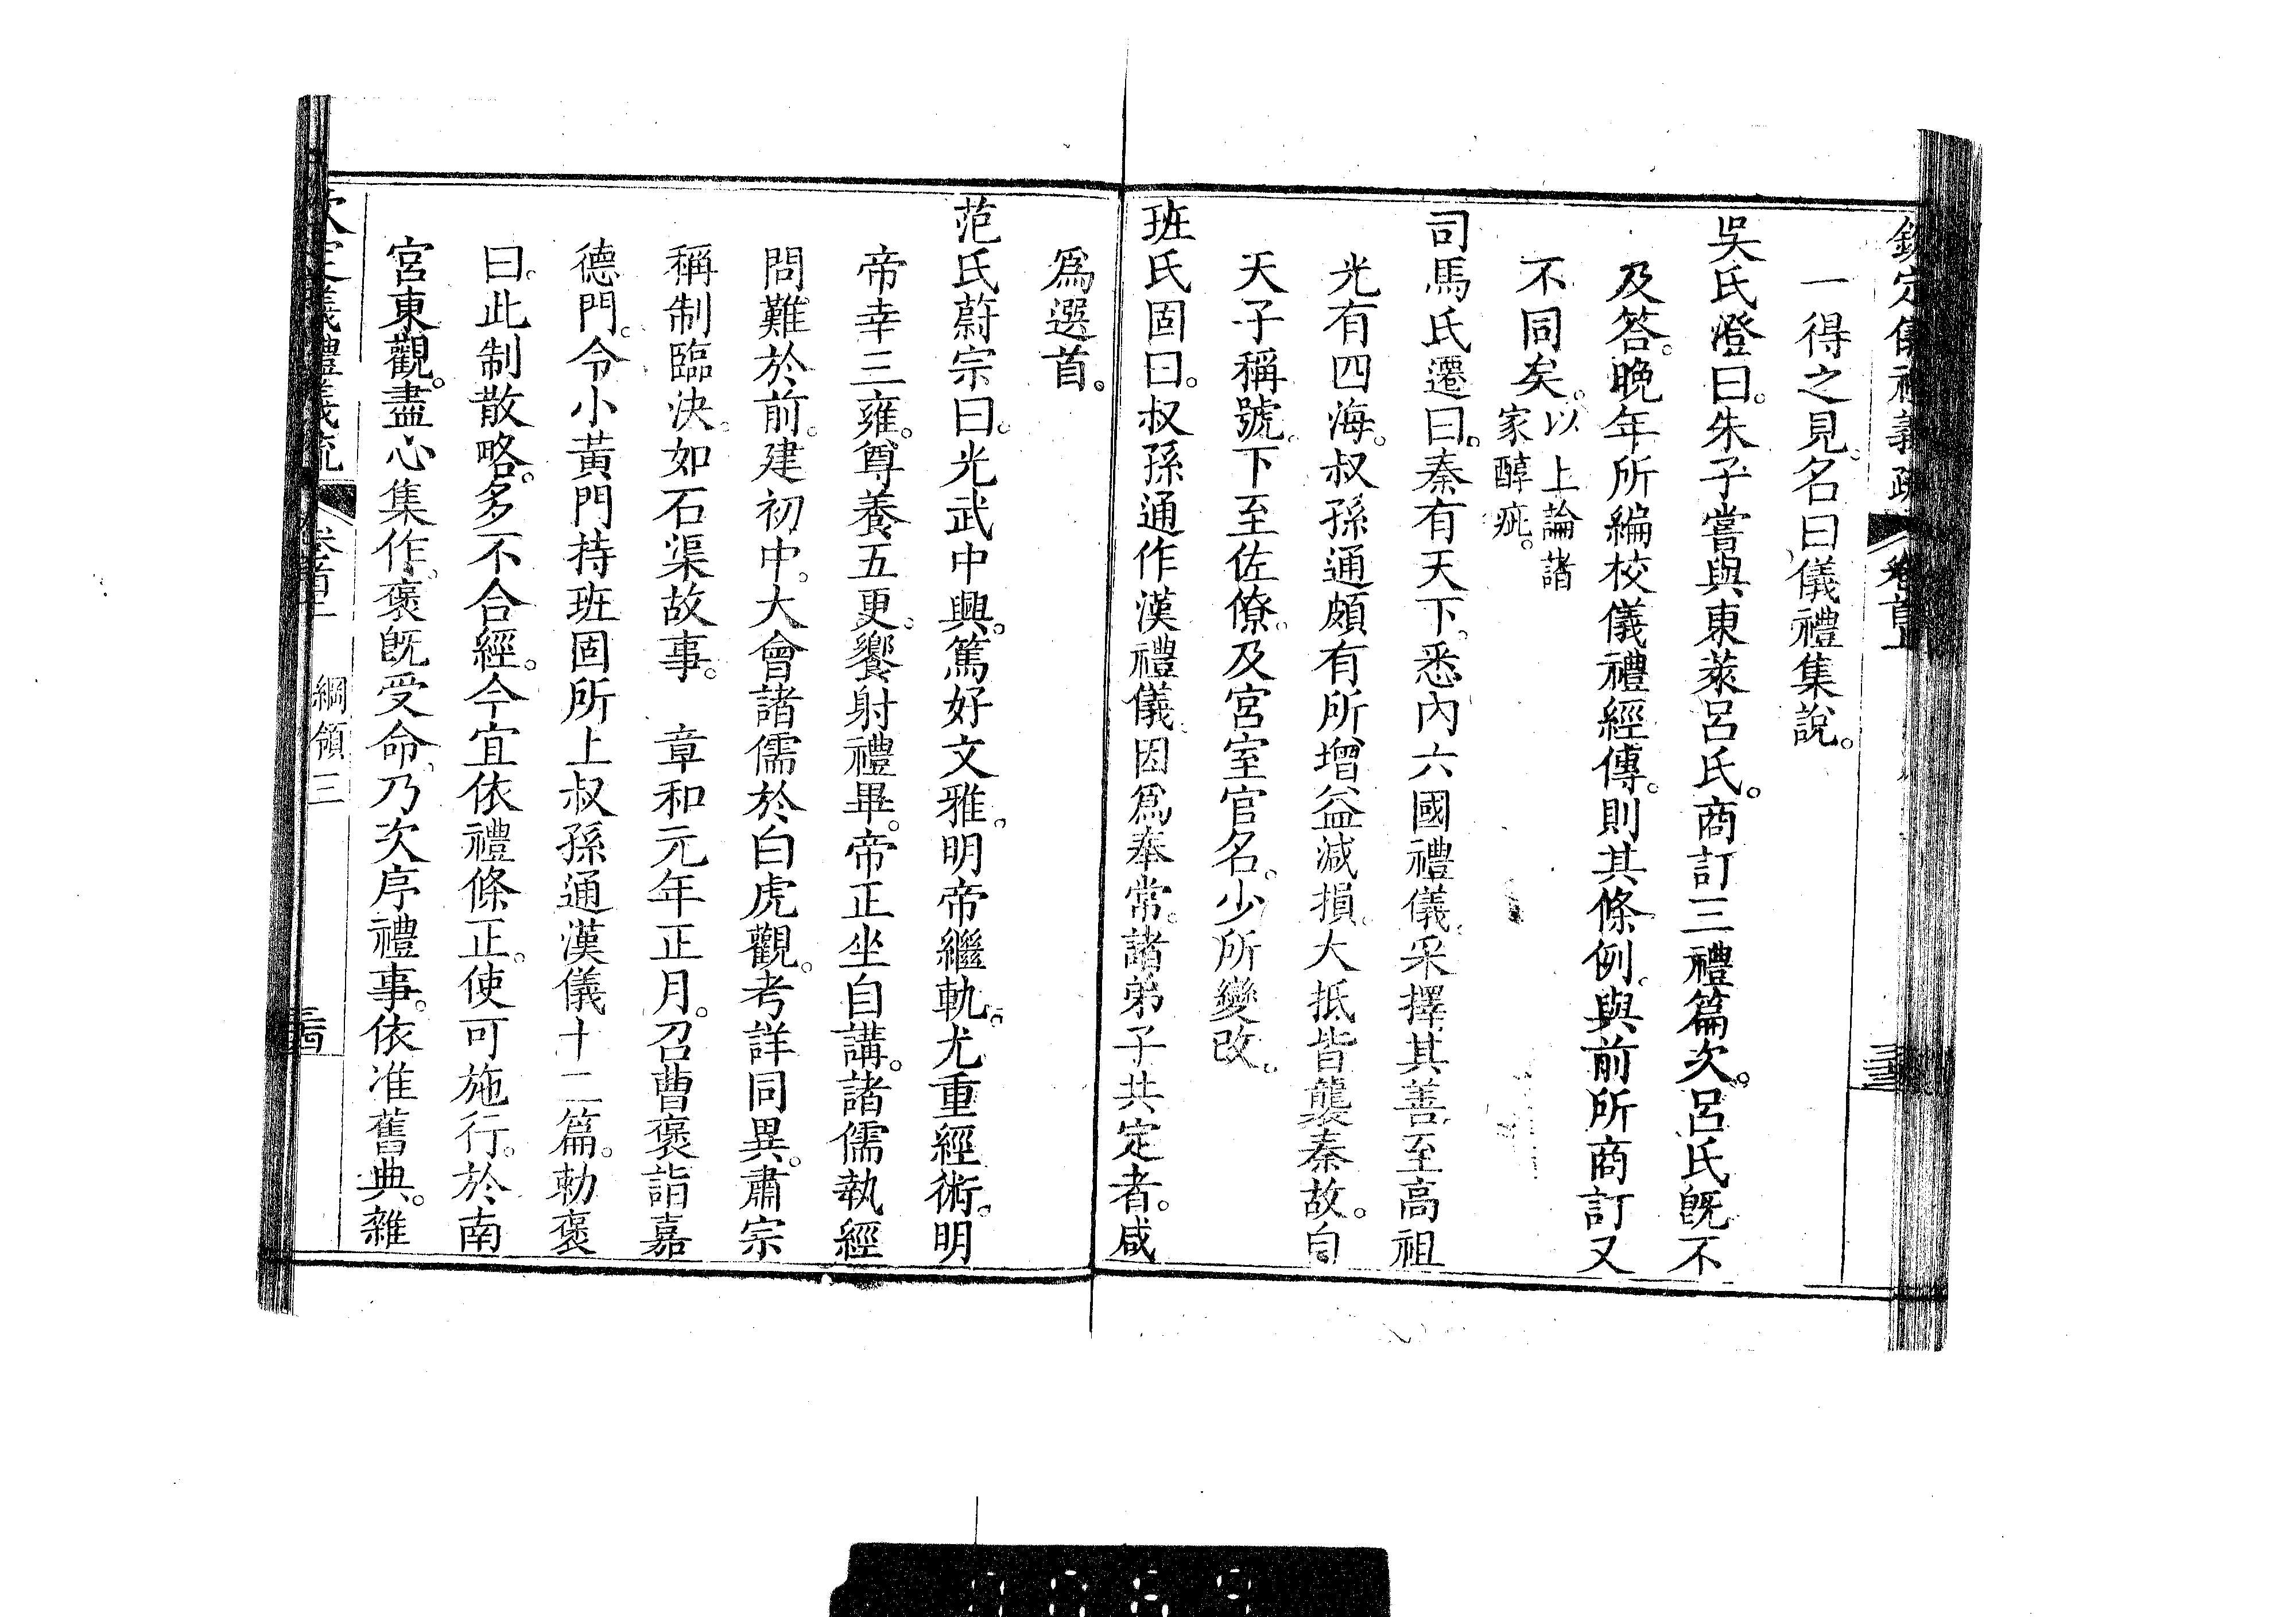 一得之見。名曰儀禮集說。
吳氏澄曰。朱子嘗與東萊呂氏。商訂三禮篇次。呂氏既不
及答。晚年所編校儀禮經傳。則其條例。與前所商訂又
不同矣。以上論諸
家醇疵。
司馬氏遷曰。秦有天下。悉內六國禮儀。采擇其善至高祖
光有四海。叔孫通頗有所增益減損。大抵皆襲秦故。自
天子稱號。下至佐僚。及宮室官名。少所變改。
班氏固曰。叔孫通作漢禮儀。因爲奉常。諸弟子共定者。咸
爲選首。
范氏蔚宗曰。光武中興。篤好文雅。明帝繼軌。尤重經術。明
帝幸三雍。尊養五更。饗射禮畢。帝正坐自講。諸儒執經
問難於前。建初中。大會諸儒於白虎觀。考詳同異。肅宗
稱制臨決。如石渠故事。 章和元年正月。召曹褒詣嘉
德門。令小黃門持班固所上叔孫通漢儀十二篇。勅褒
曰。此制散略。多不合經。今宜依禮條正。使可施行。於南
宮東觀。盡心集作。褒既受命。乃次序禮事。依准舊典。雜
綱領三